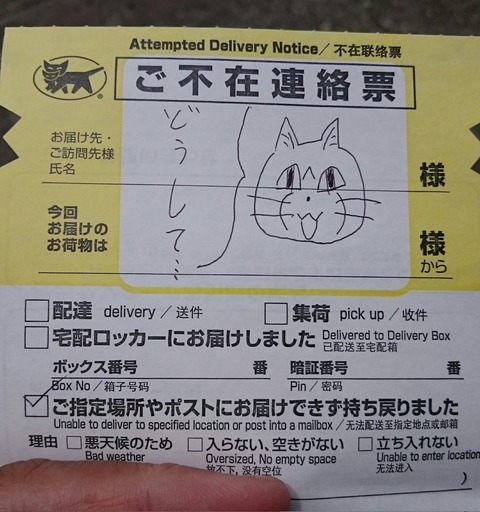 Attempted Delivery Notice／不在联络票
ご不在連絡票
お届け先・
ご訪問先様
氏名
様
どうして…
今回
お届けの
お荷物は
様
から
配達 delivery／送件
集荷 pick up／收件
宅配ロッカーにお届けしました Delivered to Delivery Box
已配送至宅配箱
ボックス番号 番 暗証番号 番
Box No／箱子号码 Pin／密码
ご指定場所やポストにお届けできず持ち戻りました
Unable to deliver to specified location or post into a mailbox／无法配送至指定地点或邮箱
理由 悪天候のため 入らない、空きがない 立ち入れない
Bad weather Oversized, No empty space Unable to enter location
放不下, 没有空位 无法进入
)